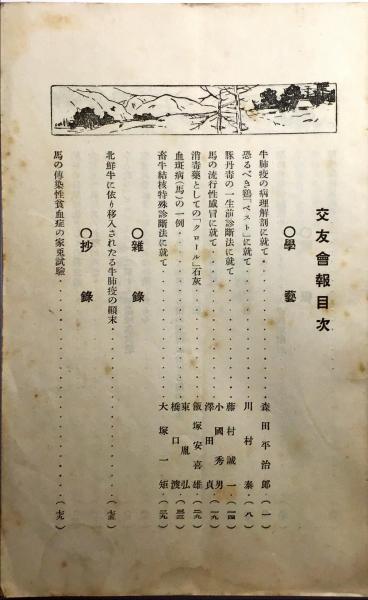 交友會報目次
〇學藝
牛肺疫の病理解剖に就て・・・・・・森田平治郎(一)
恐るべき鷄「ペスト」に就て・・・・・・川村泰(八)
豚丹毒の一生前診斷法に就て・・・・・・藤村誠一(一四)
馬の流行性感冒に就て・・・・・・小國秀男 澤田貞(一九)
消毒藥としての「クロール」石灰・・・・・・飯塚安喜雄(二九)
血斑病(馬)の一例・・・・・・東胤弘 橋口渡(三三)
畜牛結核特殊診斷法に就て・・・・・・大塚一矩(三九)
〇雜錄
北鮮牛に依り移入されたる牛肺疫の顚末・・・・・・(七五)
〇抄錄
馬の傳染性貧血症の家兎試驗・・・・・・(七九)